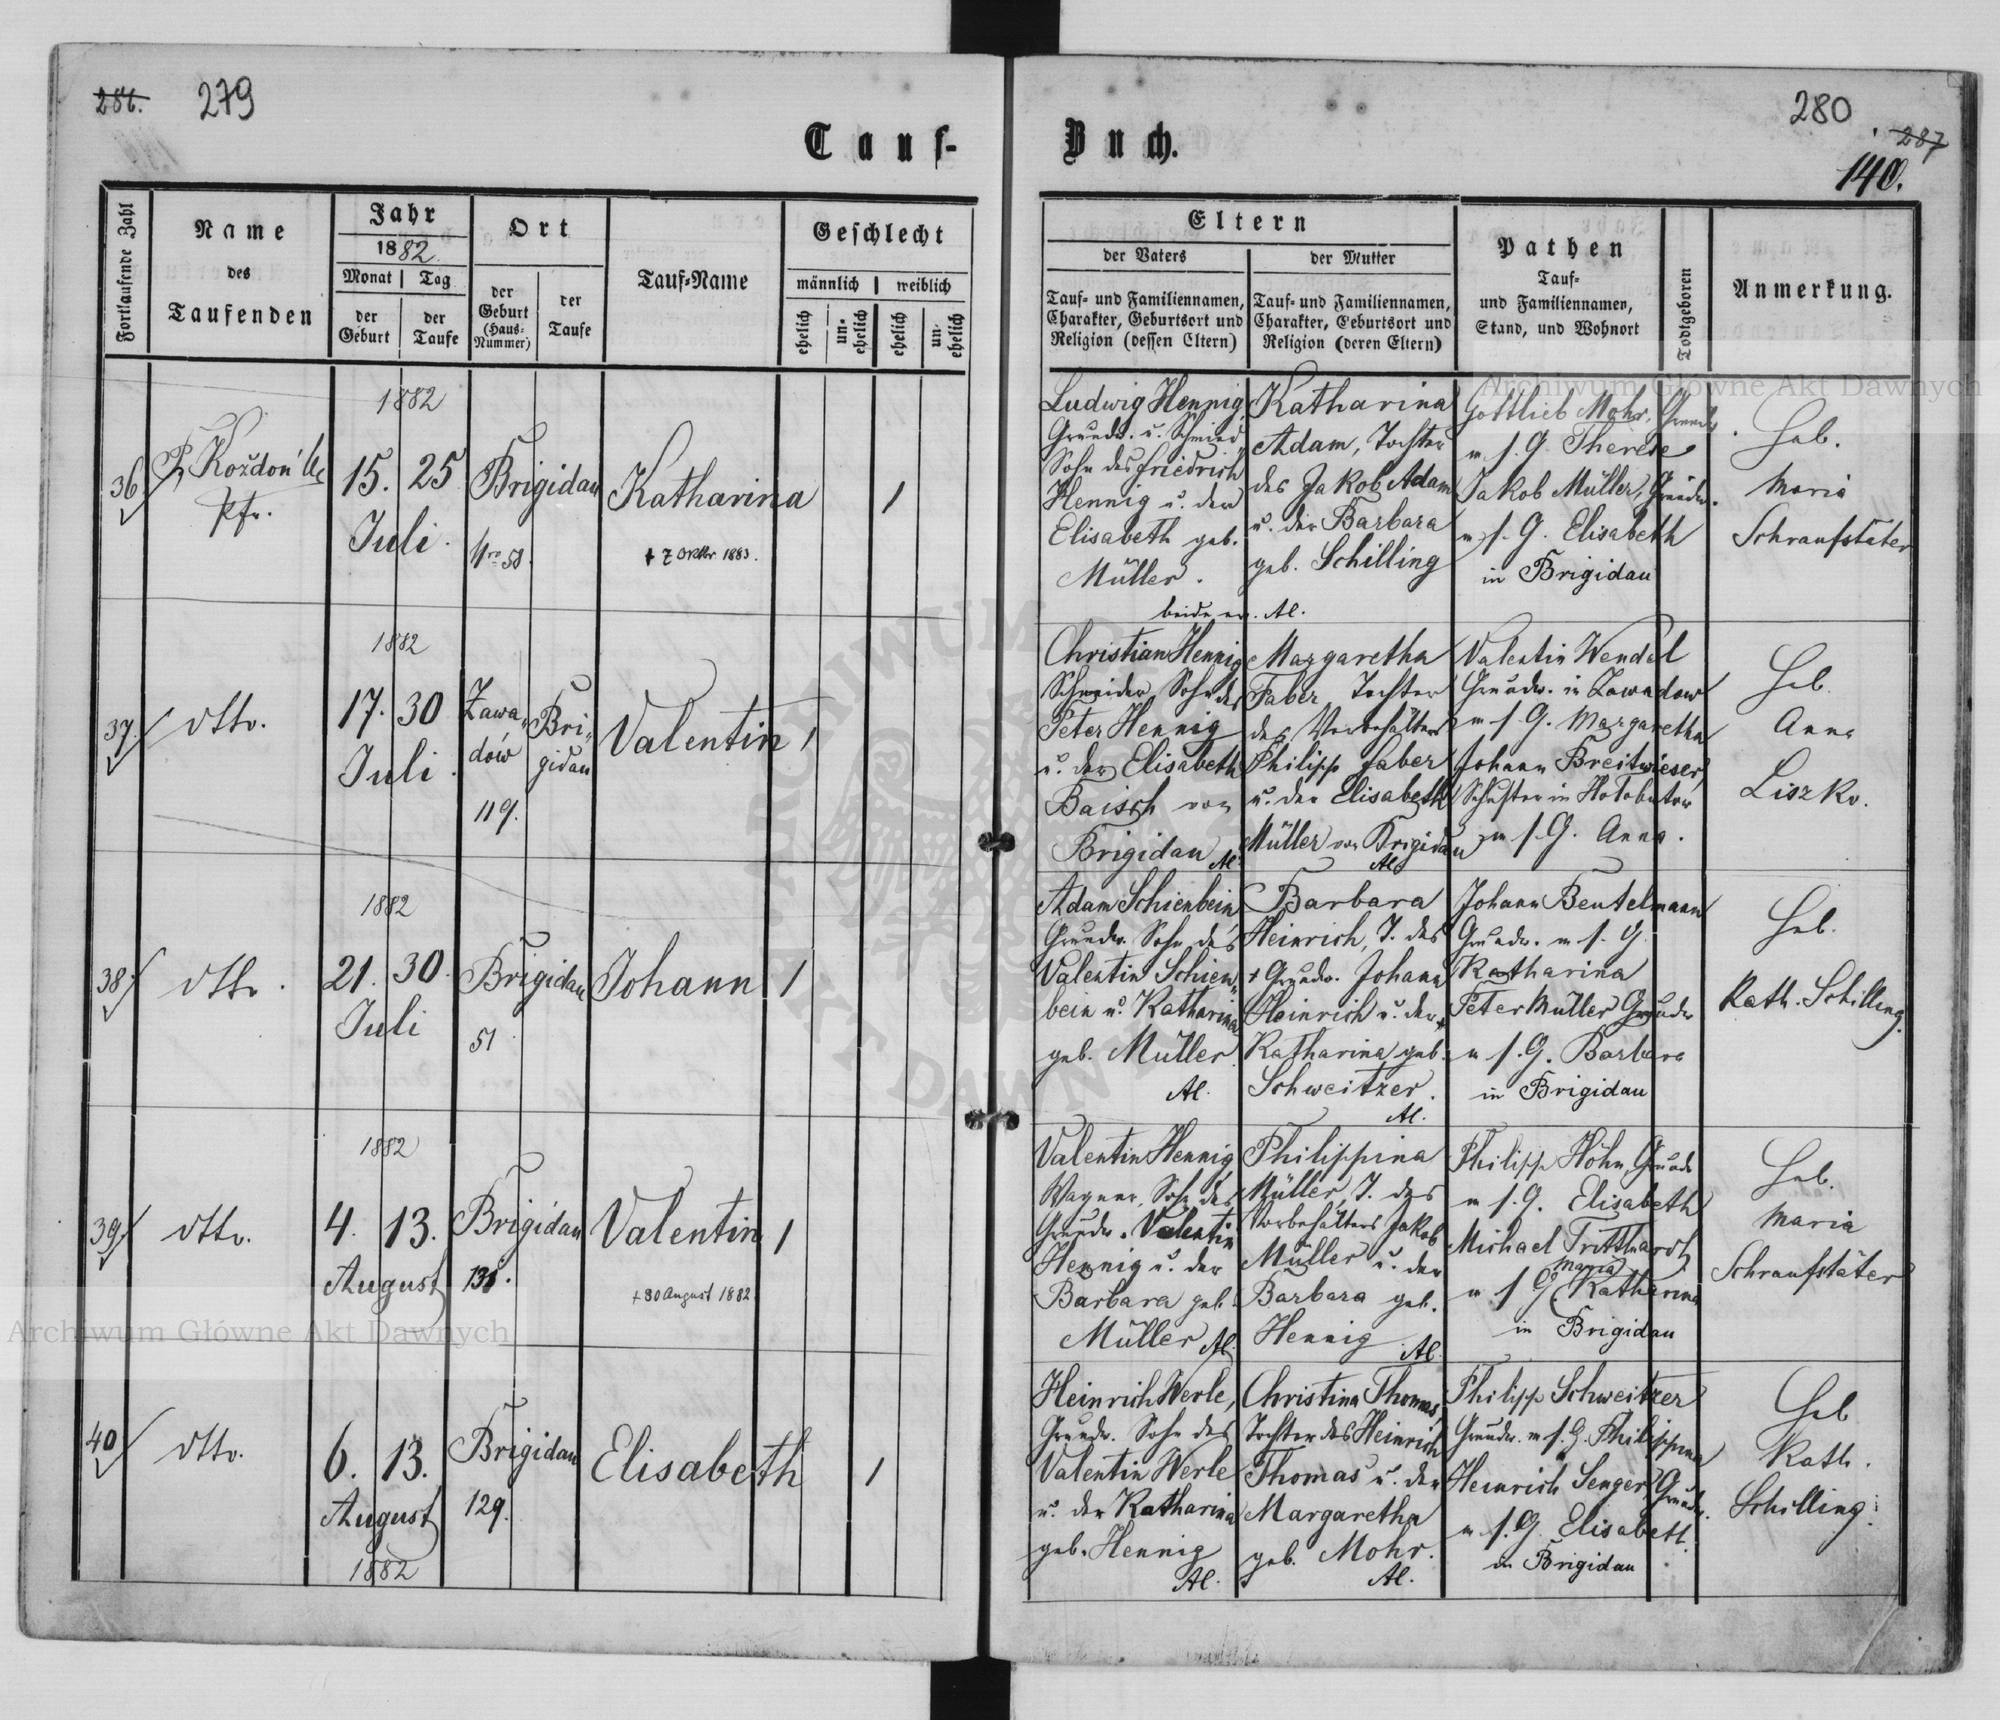 286.
279
Tauf-
Fortlaufende Zahl
Name
des
Taufenden
Jahr
1882.
Monat | Tag
der
Geburt
der
Taufe
Ort
der
Geburt
(Haus-
Nummer)
der
Taufe
Tauf-Name
Geschlecht
männlich | weiblich
ehelich
un-
ehelich
ehelich
un-
ehelich
1882
36
Koždoń
Pfr.
15. 25
Juli.
Brigidau
Nro 58.
Katharina
† 7 Oktbr. 1883.
1
1882
37.
dtto.
17. 30
Juli.
Zawa„
dów
119.
Bri„
gidau
Valentin
1
1882
38.
dtto.
21. 30.
Juli
Brigidau
51
Johann
1
1882
39.
dtto.
4. 13.
August
Brigidau
Valentin
1
† 30 August 1882
40
dtto.
6. 13.
August
1882
Brigidau
129.
Elisabeth
1
280
287
140.
Buch.
Eltern
der Vaters
Tauf- und Familiennamen,
Charakter, Geburtsort und
Religion (dessen Eltern)
der Mutter
Tauf- und Familiennamen,
Charakter, Geburtsort und
Religion (deren Eltern)
Pathen
Tauf-
und Familiennamen,
Stand, und Wohnort
Todtgeboren
Anmerkung.
Ludwig Hennig,
Grundw. u. Schmied,
Sohn des Friedrich
Hennig u. der
Elisabeth geb.
Müller.
beide ev. Al.
Katharina
Adam, Tochter
des Jakob Adam
u. der Barbara
geb. Schilling
Gottlieb Mohr, Grundw.
m. s. G. Therese
Jakob Müller, Grundw.
m. s. G. Elisabeth
in Brigidau
Heb.
Maria
Schraufstäter
Christian Hennig
Schneider, Sohn des
Peter Hennig
u. der Elisabeth
Baisch von
Brigidau Al.
Margaretha
Faber Tochter
des Vorbehälters
Philipp Faber
u. der Elisabeth
Müller von Brigidau
Al.
Valentin Wendel
Grundw. in Zawadow
m s. G. Margaretha
Johann Breitwieser,
Schuster in Hołobutow
m s. G. Anna.
Heb.
Anna
Liszko.
Adam Schienbein
Grundw. Sohn des
Valentin Schien„
bein u. Katharina
geb. Müller
Al.
Barbara
Heinrich, T. des
† Grundw. Johann
Heinrich u. der †
Katharina geb.
Schweitzer.
Al.
Johann Beutelmann
Grundw. m s. G.
Katharina
Peter Müller Grundw
m s. G. Barbara
in Brigidau
Heb.
Kath. Schilling.
Valentin Hennig,
Wagner, Sohn des
Grundw. Valentin
Hennig u. der
Barbara geb.
Müller Al.
Philippina
Müller, T. des
Vorbehälters Jakob
Müller u. der
Barbara geb.
Hennig Al.
Philipp Höhn, Grundw
m s. G. Elisabeth
Michael Tritthardt
Maria
m s G. Katharina
in Brigidau
Heb.
Maria
Schraufstäter
Heinrich Werle,
Grundw. Sohn des
Valentin Werle
u. der Katharina
geb. Hennig
Al.
Christina Thomas,
Tochter des Heinrich
Thomas u. der
Margaretha
geb. Mohr.
Al.
Philipp Schweitzer
Grundw. m s. G. Philippina
Heinrich Senger, Grundw.
m s. G. Elisabeth
in Brigidau
Heb
Kath.
Schilling.
Archiwum Główne Akt Dawnych
Archiwum Główne Akt Dawnych